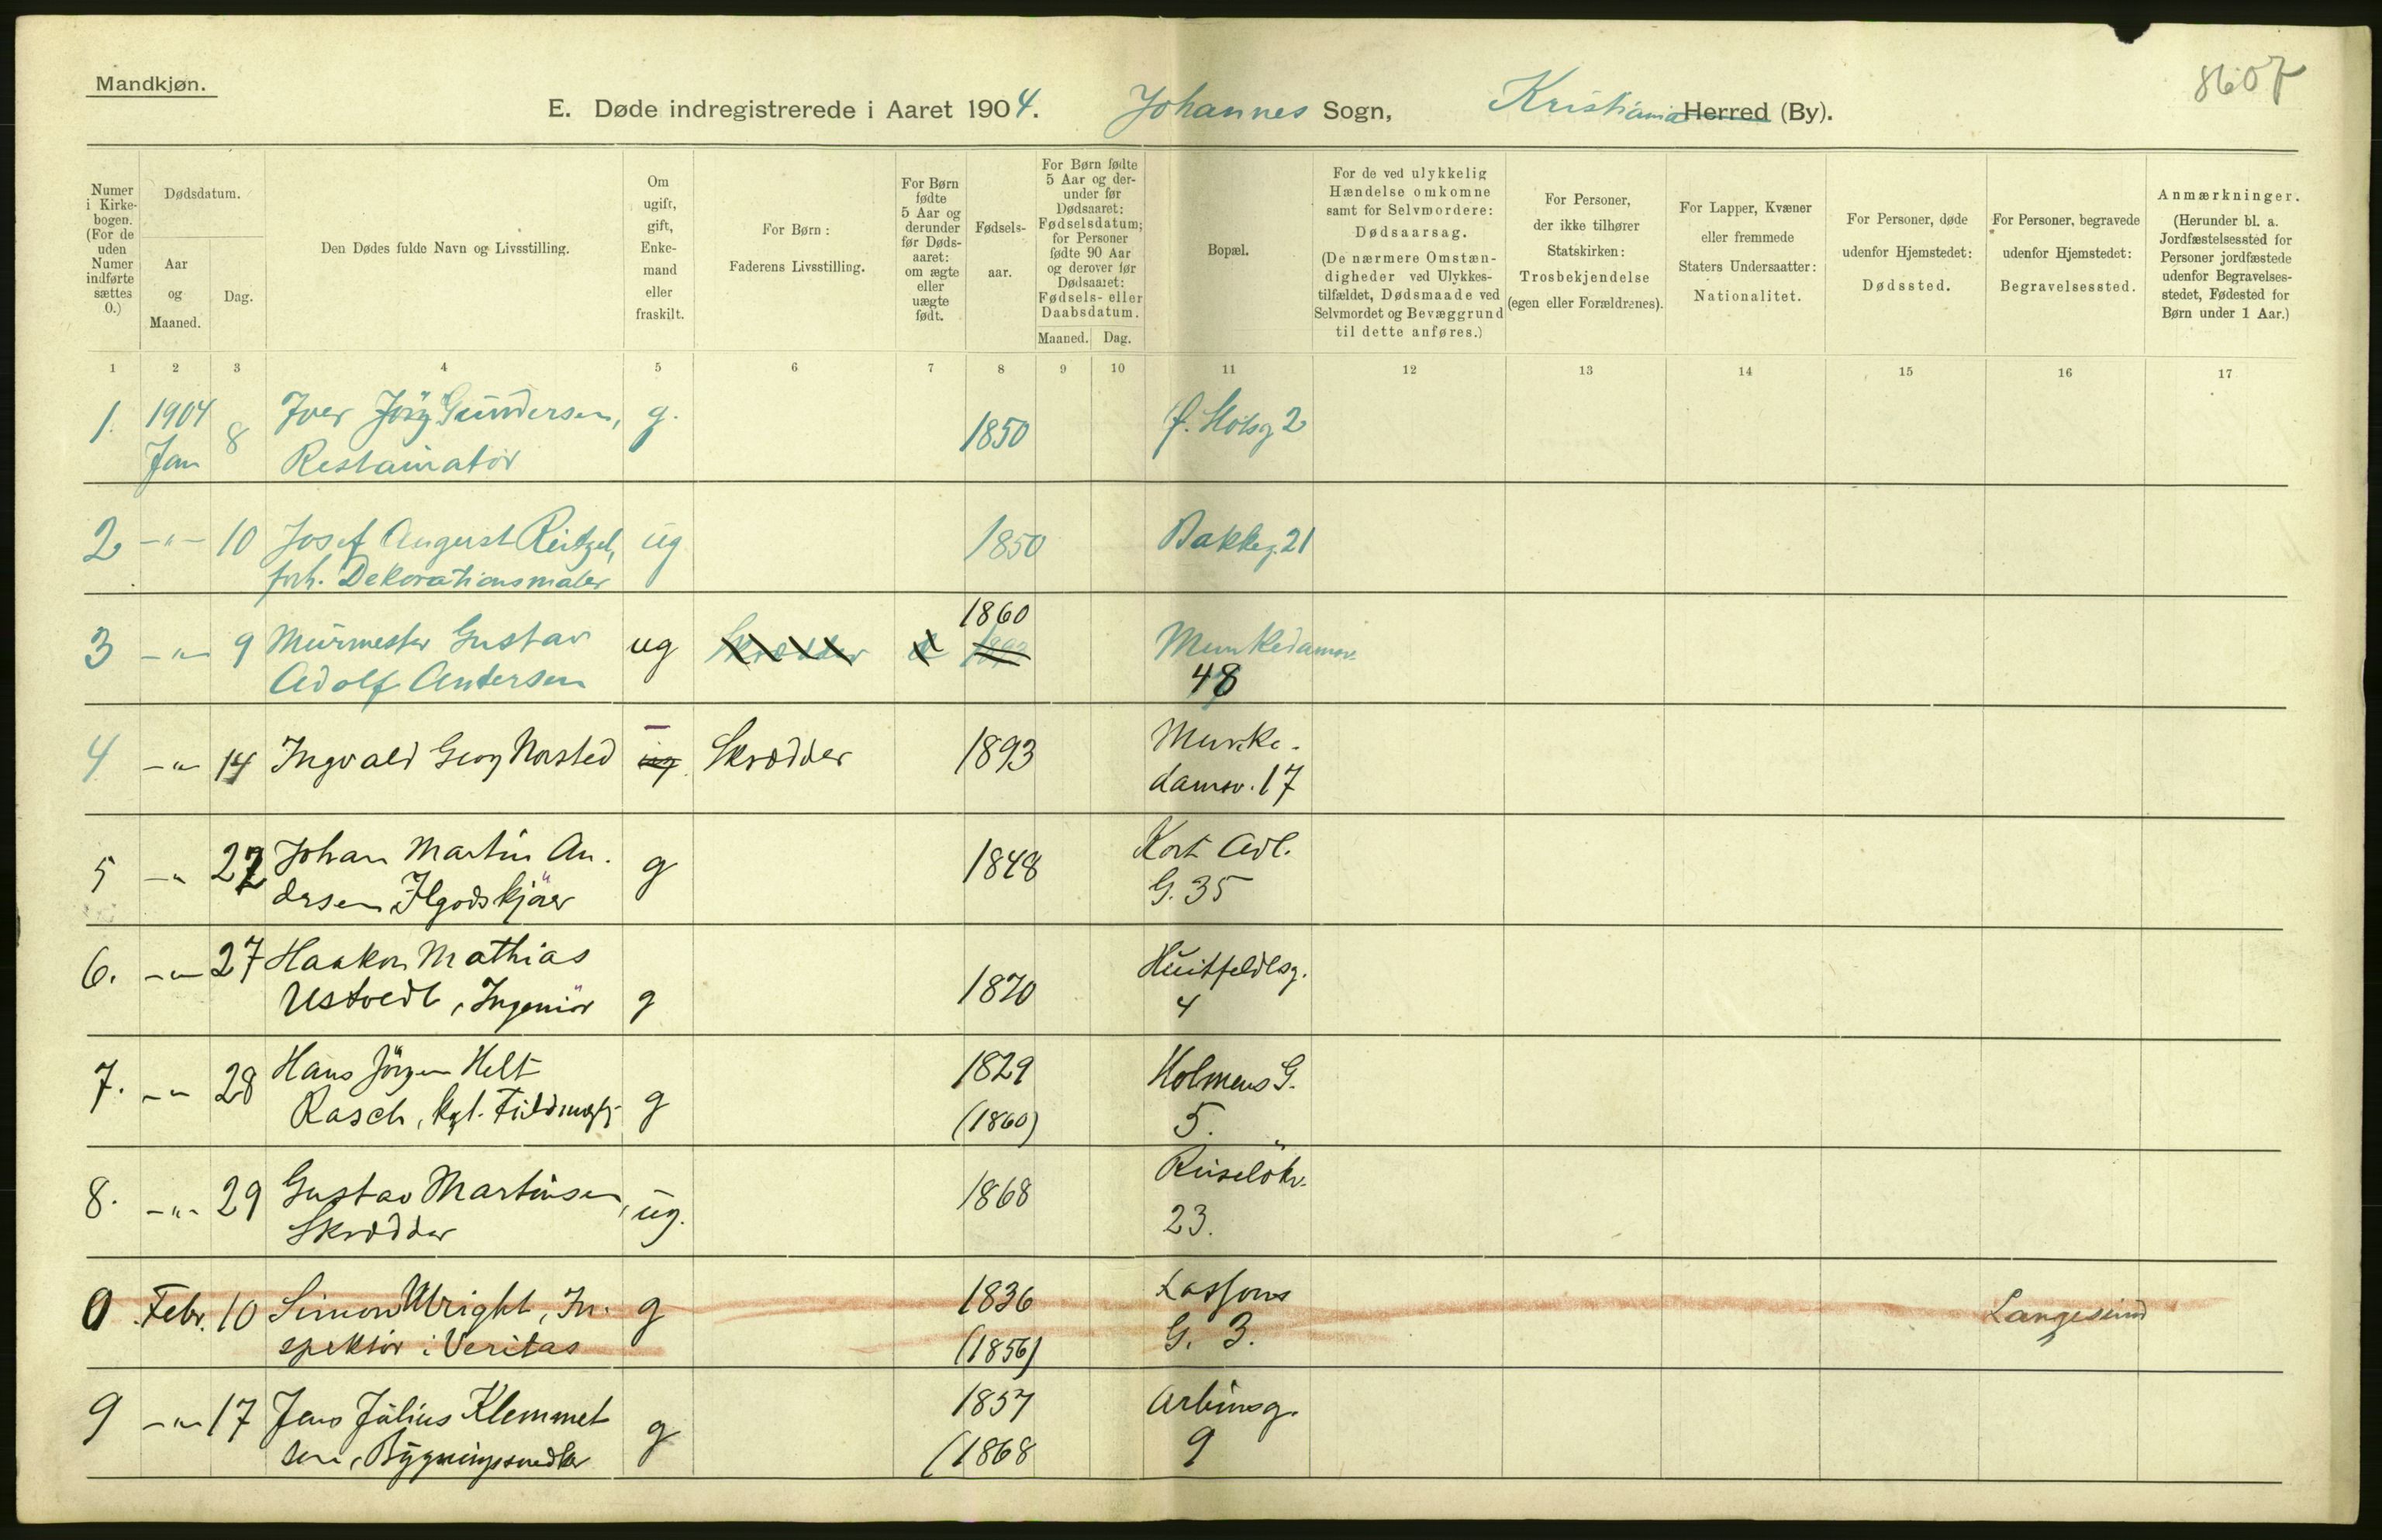 Mandkjøn.
8607
E. Døde indregistrerede i Aaret 1904. Johannes Sogn, Kristiania Herred (By).
Numer i Kirkebogen. (For de uden Numer indførte sættes 0.)
Dødsdatum.
Aar og Maaned.
Dag.
Den Dødes fulde Navn og Livsstilling.
Om ugift, gift, Enkemand eller fraskilt.
For Børn: Faderens Livsstilling.
For Børn fødte 5 Aar og derunder før Dødsaaret: om ægte eller uægte født.
Fødselsaar.
For Børn fødte 5 Aar og derunder før Dødsaaret: Fødselsdatum; for Personer fødte 90 Aar og derover før Dødsaaret: Fødsels- eller Daabsdatum.
Maaned. Dag.
Bopæl.
For de ved ulykkelig Hændelse omkomne samt for Selvmordere: Dødsaarsag.
(De nærmere Omstændigheder ved Ulykkestilfældet, Dødsmaade ved Selvmordet og Bevæggrund til dette anføres.)
For Personer, der ikke tilhører Statskirken: Trosbekjendelse (egen eller Forældrenes).
For Lapper, Kvæner eller fremmede Staters Undersaatter: Nationalitet.
For Personer, døde udenfor Hjemstedet: Dødssted.
For Personer, begravede udenfor Hjemstedet: Begravelsessted.
Anmærkninger.
(Herunder bl. a. Jordfæstelsessted for Personer jordfæstede udenfor Begravelsesstedet, Fødested for Børn under 1 Aar.)
1 2 3 4 5 6 7 8 9 10 11 12 13 14 15 16 17
1. 1904 Jan 8 Iver Jörg Gundersen, g. 1850 f. Holsg 2
Restauratör
2 -"- 10 Josef August Reitzel, ug 1850 Bakkeg. 21
forh. Dekorationsmaler
3 -"- 9 Murmester Gustav ug Skrædder 1860 Munkedamsv.
Adolf Andersen 48
4 -"- 14 Ingvald Georg Norsted ug. Skrædder 1893 Munke-
damsv. 17
5 -"- 22 Johan Martin An- g 1848 Kort Adl.
dersen, Ilgodskjörer G. 35
6. -"- 27 Haakon Mathias 1870 Huitfeldtsg.
Ustvedt, Ingeniör g 4
7. -"- 28 Hans Jörgen Helt 1829 Holmens G.
Rasch, kgl. Fuldmægt. g (1860) 5.
8. -"- 29 Gustav Martinsen, ug. 1868 Ruselökv.
Skrædder 23.
0 Febr. 10 Simon Wright, In- g 1836 Lassons Langesund
spektör i Veritas (1856) G. 3.
9 -"- 17 Jens Julius Klemmet 1837 Arbinsg.
sen, Bygningssnedker g (1868 9